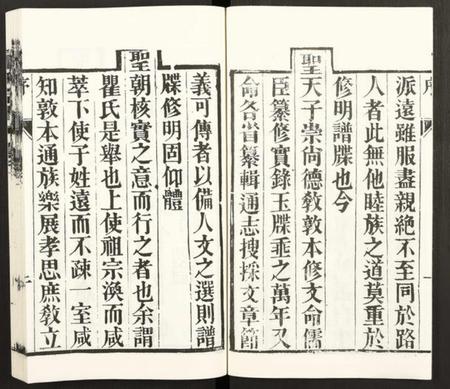 派遠雖服盡親絶不至同於路
人者此無他睦族之道莫重於
修明譜牒也今
聖天子崇尚德教敦本修文命儒
臣纂修實錄玉牒垂之萬年又
命各省纂輯通志搜採文章節
義可傳者以備人文之選則譜
牒修明固仰體
聖朝核實之意而行之者也余謂
瞿氏是舉也上使祖宗渙而咸
萃下使子姓遠而不疎一室咸
知敦本通族樂展孝思庶教立
序
二